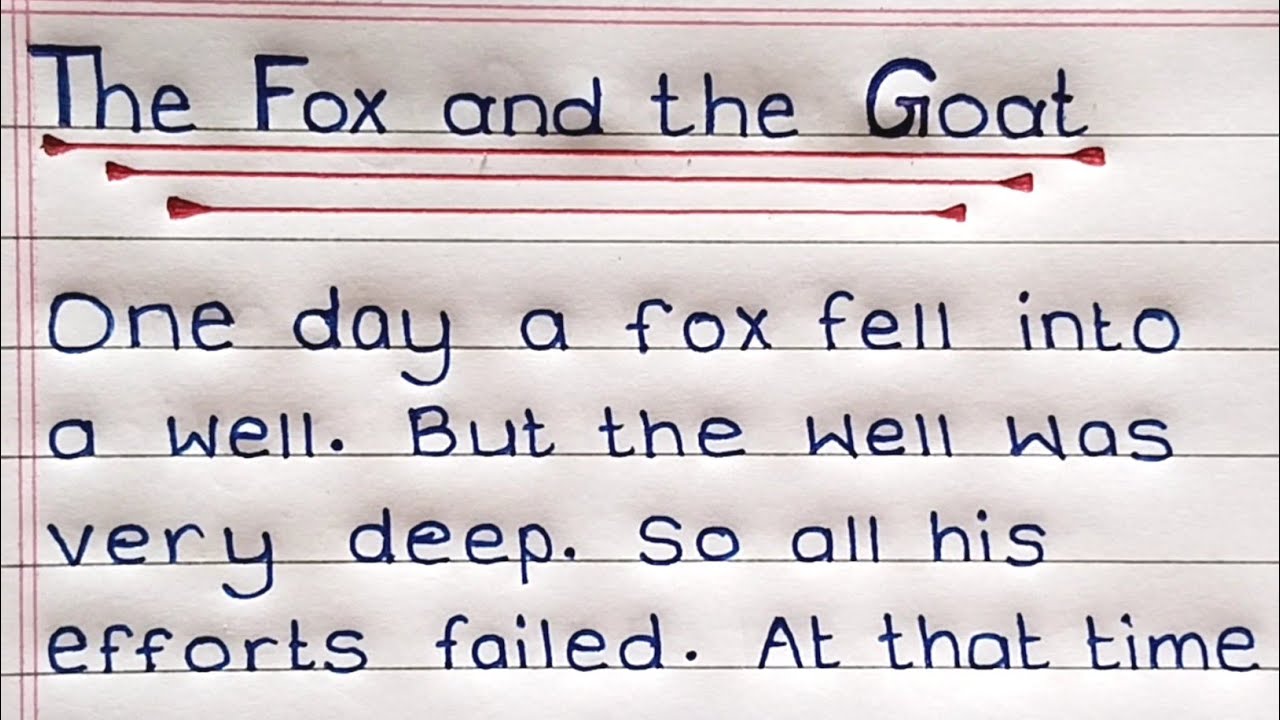 The Fox and the Goat
One day a fox fell into
a well. But the well was
very deep. So all his
efforts failed. At that time